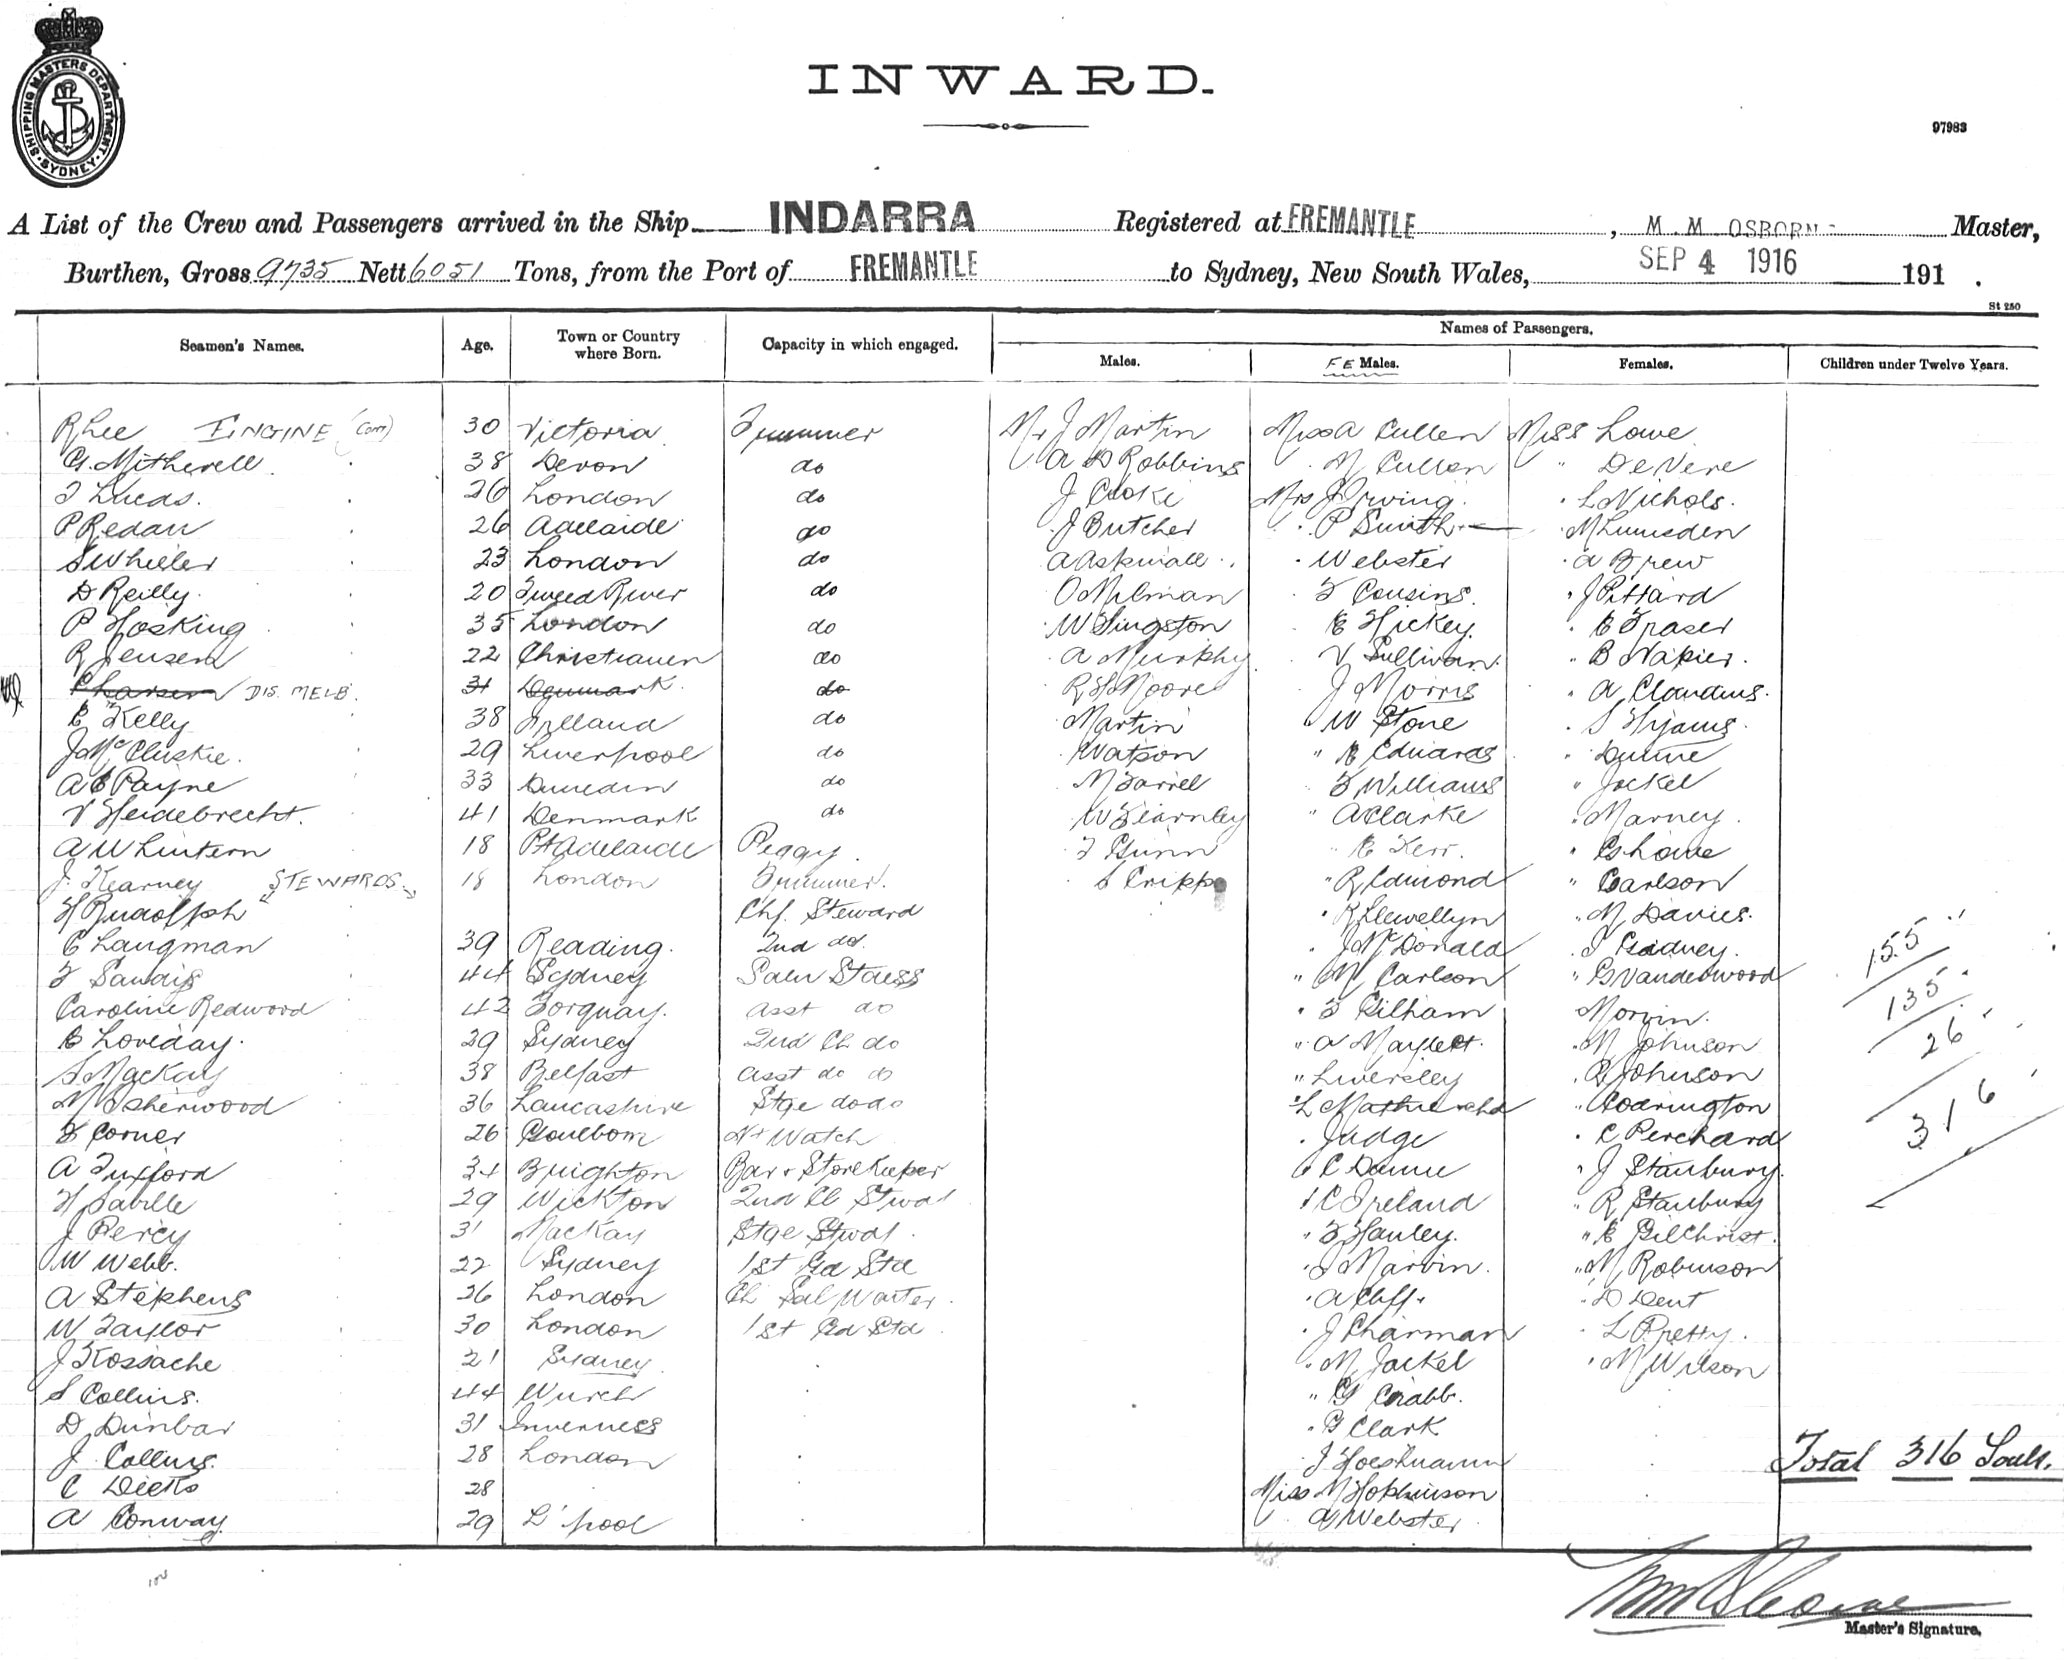 SHIPPING MASTERS DEPARTMENT. SYDNEY
INWARD.
97983
A List of the Crew and Passengers arrived in the Ship INDARRA Registered at FREMANTLE, M. M. OSBORNE Master,
Burthen, Gross 9735 Nett 6051 Tons, from the Port of FREMANTLE to Sydney, New South Wales, SEP 4 1916 191 .
St 250
Seamen's Names. Age. Town or Country where Born. Capacity in which engaged. Names of Passengers.
Males. FE Males. Females. Children under Twelve Years.
R Lee ENGINE (con) 30 Victoria Trimmer Mr J Martin Miss A Cullen Miss Lowe
G. Mitherell 38 Devon do A D Robbins " M Cullen " De Vere
T Lucas. 26 London do J Cooke Mrs J Irving. " L Nichols.
P Redan 26 Adelaide do J Butcher " P Smith " M Lumsden
S Wheeler 23 London do A Aspinall " Webster " A Brew
D Reilly. 20 Tweed River do O Milman " T Cousins. " J Pittard
P Hosking 35 London do W Singston " E Hickey. " E Fraser
R Jensen 22 Christianen do A Murphy " V Sullivan. " B Napier.
DIS. MELB. 31 Denmark. do R H Moore " J Morris " A Claudius.
E Kelly 38 Irelland do Martin " W Stone " S Hyams.
J McCluskie. 29 Liverpool do Watson " E Edwards " Dunne
A E Payne 33 Dunedin do M Farrel T Williams " Jackel
V Heidebrecht. 41 Denmark do W Fearnley " A Clarke " Marney.
A W Lintern 18 Pt Adelaide Peggy. T Gunn " E Kerr. " G Lowe
J. Kearney STEWARDS 18 London Trimmer. S Cripps " R Edmond " Carlson
H Rudolph Chf. Steward " R Llewellyn " M Davies.
C Langman 39 Reading. 2nd do. " J McDonald " S Gidney. 155
F Sandis 44 Sydney Saln Stwess " M Carlson " G Vanderwood
Caroline Redwood 42 Torquay. asst do " F Gilham Morvin. 135
E Loveday. 29 Sydney 2nd Cl do " A Maylett. " M Johnson 26
S Mackay 38 Belfast asst do do " Liversley " G Johnson
M Isherwood 36 Lancashire Stge do do " L " Codrington 316
F Corner 26 Goulborn Nt Watch " Judge " C Perchard
A Tuxford 34 Brighton Bar & Storekeeper " C Dunne " J Stanbury.
H Saville 29 Wickton 2nd Cl Stwd " C Ireland " R Stanbury
J Percy 31 Mackay Stge Stwd. " F Hanley. " E Gilchrist.
W Webb. 22 Sydney 1st Gd Std " S Marvin. " M Robinson
A Stephens 26 London Ch Sal Waiter. " A Cliff. " D Dent
W Taylor 30 London 1st Gd Std " J Charman " L Pretty.
J Kossache 21 Sydney " M Jackel " M Wilson
S Collins. 44 " G Crabb.
D Dunbar 31 Inverness " G Clark
J Collins. 28 London J Total 316 Souls.
C Dicks 28 Miss M Hopkinson
A Conway 29 L'pool " A Webster
Master's Signature.